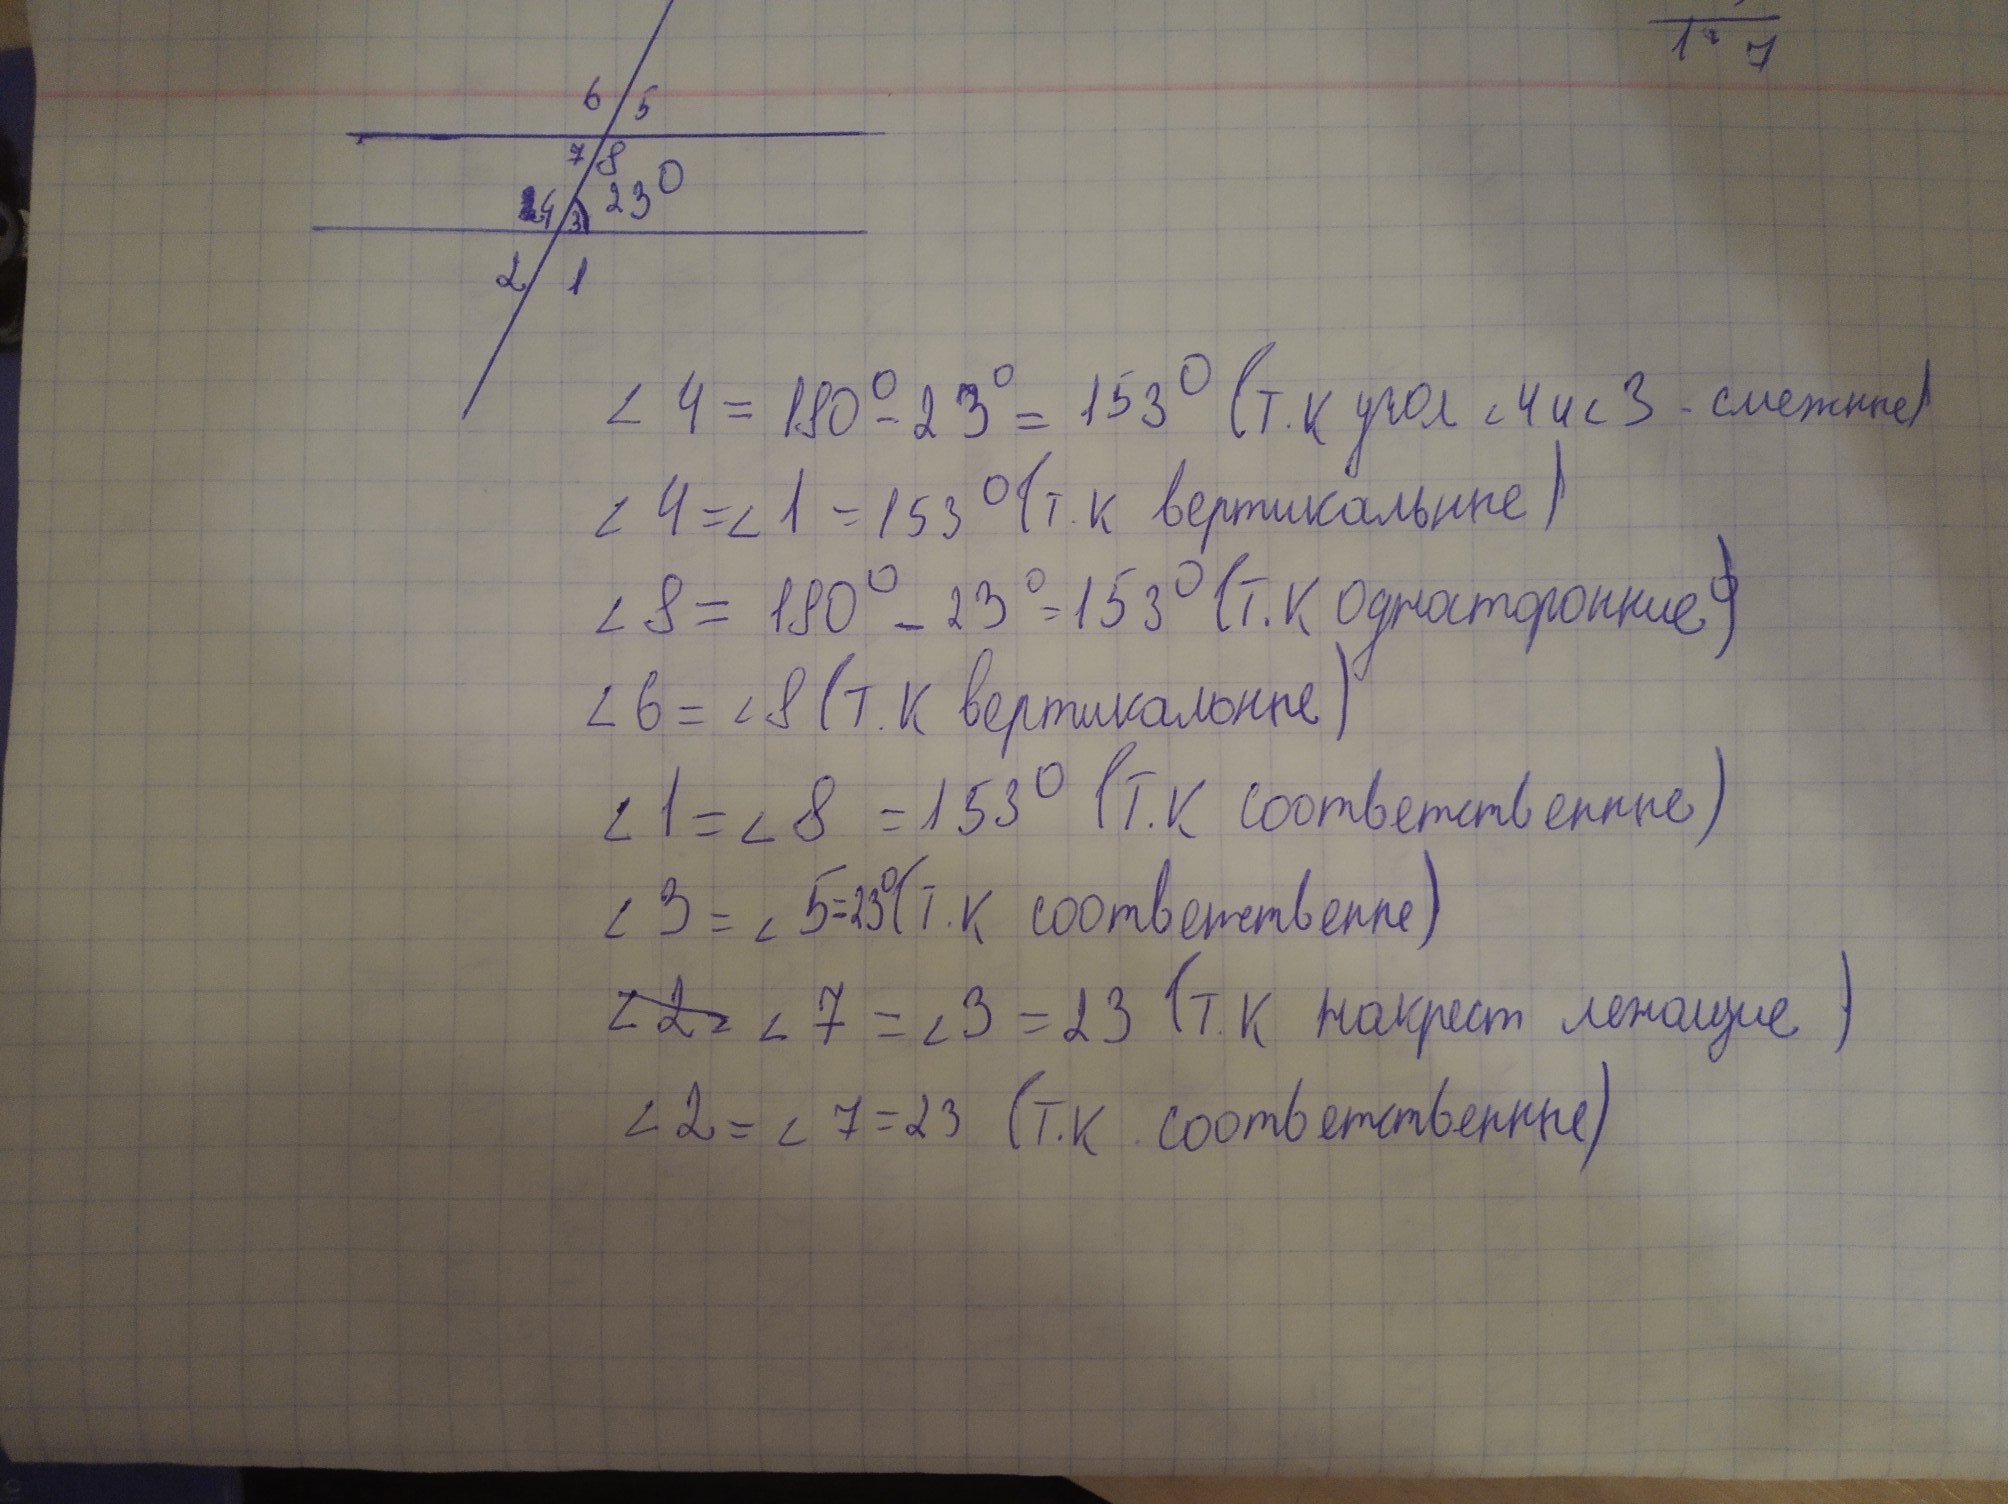 1 7
6 5
7 8
4 3 23°
2 1
∠4 = 180° - 23° = 153° (т.к угол ∠4 и ∠3 - смежные)
∠4 = ∠1 = 153° (т.к вертикальные)
∠8 = 180° - 23° = 153° (т.к односторонние)
∠6 = ∠8 (т.к вертикальные)
∠1 = ∠8 = 153° (т.к соответственные)
∠3 = ∠5 = 23° (т.к соответственые)
∠2 = ∠7 = ∠3 = 23 (т.к накрест лежащие)
∠2 = ∠7 = 23 (т.к соответственные)